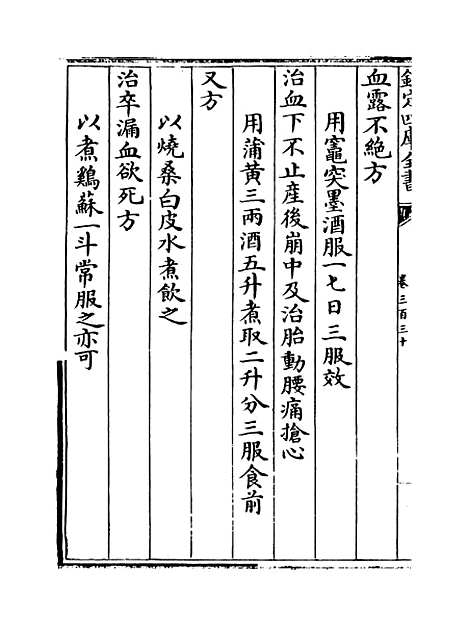 欽定四庫全書
卷三百三十
血露不絕方
用竈突墨酒服一七日三服效
治血下不止産後崩中及治胎動腰痛搶心
用蒲黄三兩酒五升煮取二升分三服食前
又方
以燒桑白皮水煮飲之
治卒漏血欲死方
以煮鷄蘇一斗常服之亦可